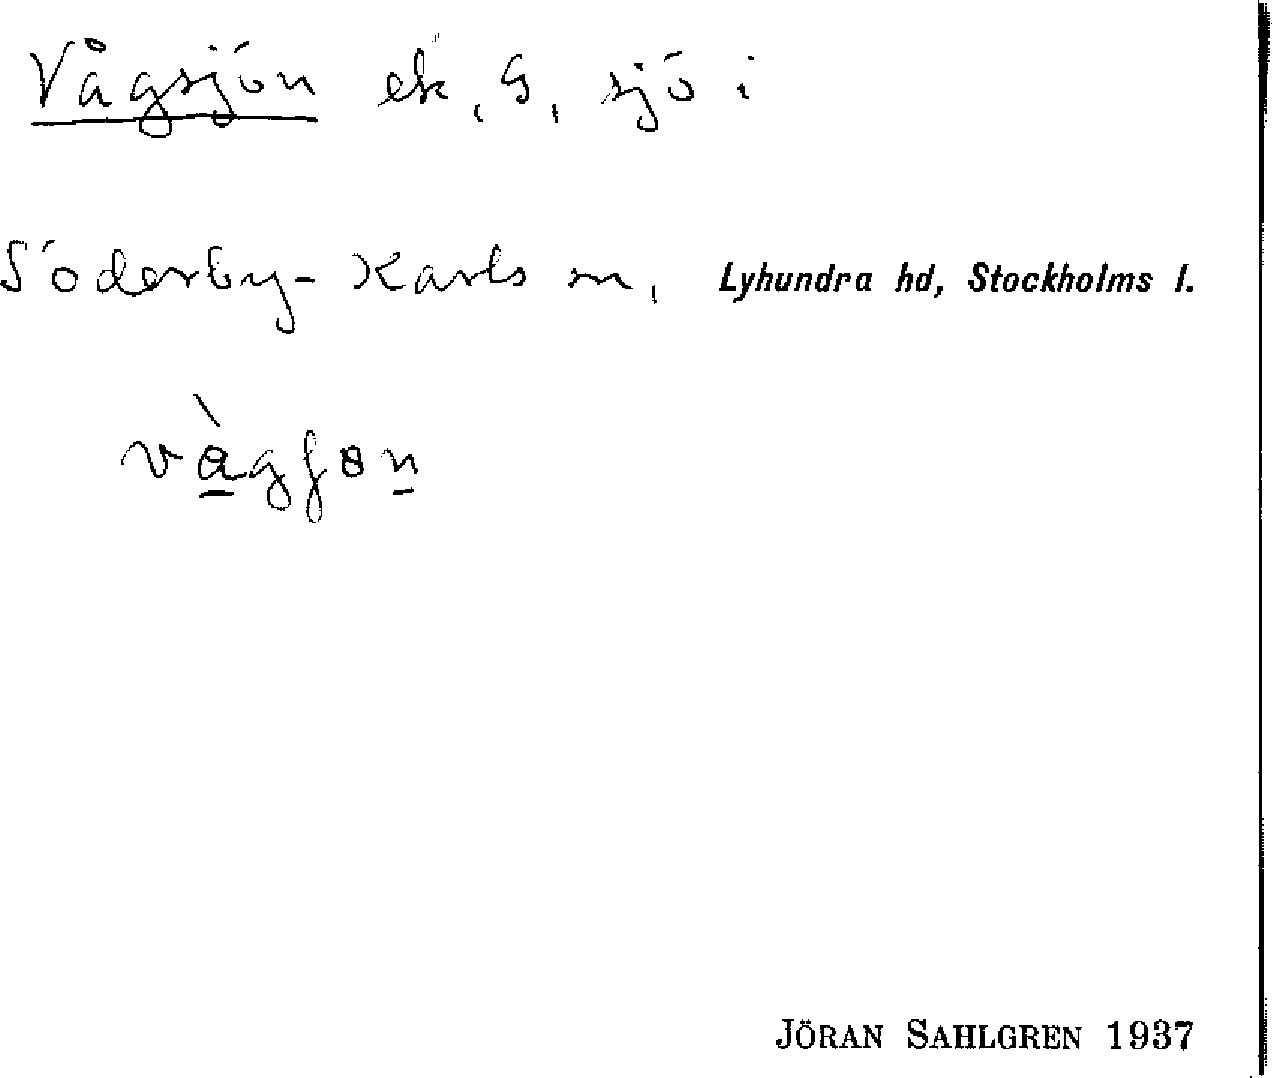 Vågsjön ek, G, sjö i
Söderby-Karls sn, Lyhundra hd, Stockholms l.
JÖRAN SAHLGREN 1937